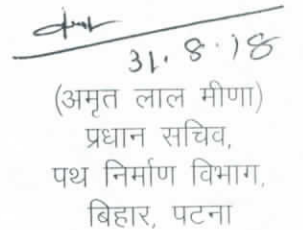 31.8.18
(अमृत लाल मीणा)
प्रधान सचिव,
पथ निर्माण विभाग,
बिहार, पटना